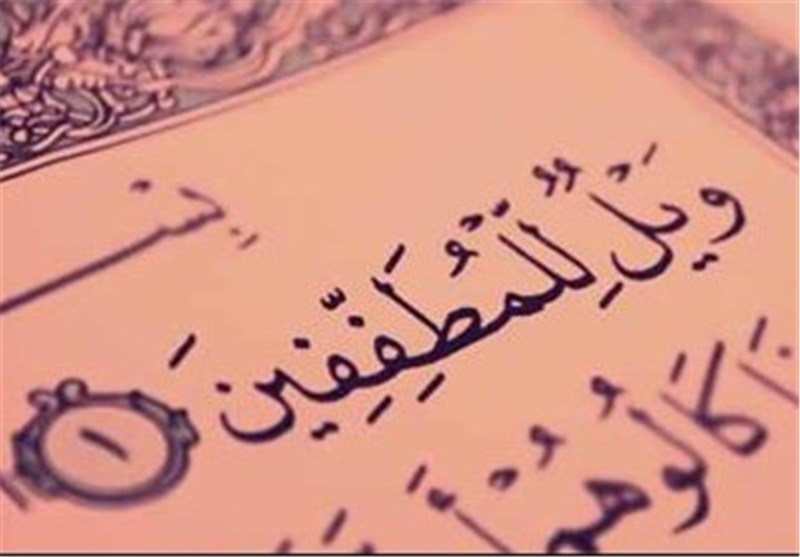 وَيْلٌ لِلْمُطَفِّفِينَ ١
كَالُوهُمْ